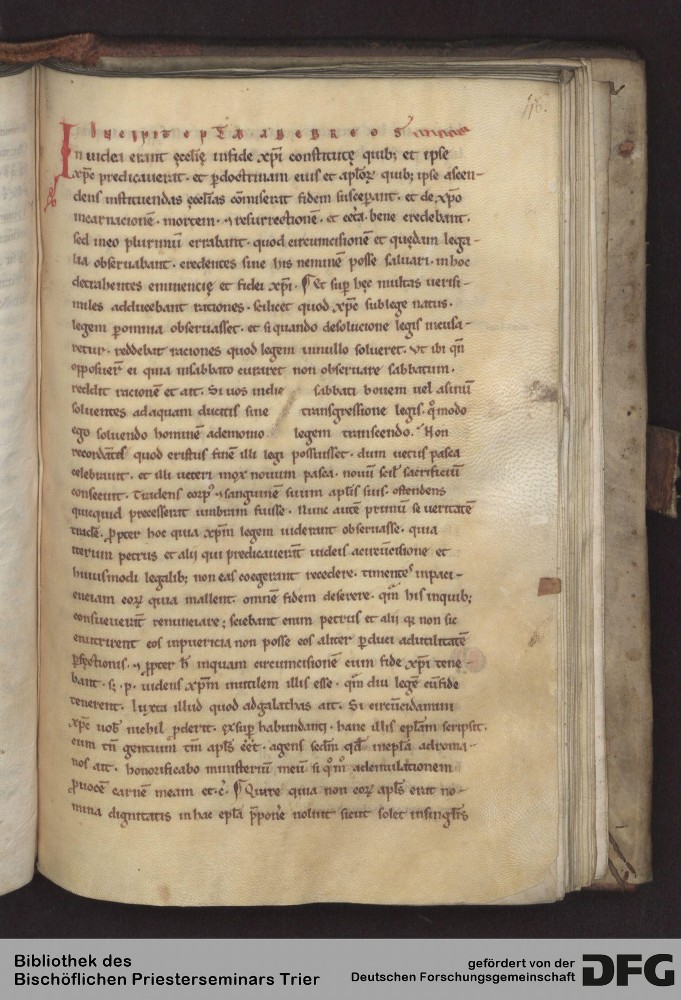 116.
Incipit epła ad ebreos
In iudea erant ęcclię in fide xp̄i constitutę quib; et ipse
xp̄c predicauerat · et p doctrinam eius et aplōꝝ quib; ipse ascen-
dens instituendas ęcclias cōmiserat fidem susceperant · et de xp̄o
incarnacionē · mortem · ⁊ resurrectionē · et cet̄a bene credebant ·
sed in eo plurimū errabant · quod circumcisionē et quędam lega-
lia obseruabant · credentes sine his neminē posse saluari · in hoc
detrahentes eminencię et fidei xp̄i · ¶ Et sup hęc multas uerisi-
miles adducebant raciones · scilicet quod xp̄c sub lege natus ·
legem p omnia obseruasset · et si quando de solucione legis incusa-
retur · reddebat raciones quod legem in nullo solueret · Vt ibi qn̄
opposuer̄ ei quia in sabbato curaret non obseruare sabbatum ·
reddit racionē et ait · Si uos in die sabbati bouem uel asinū
soluentes ad aquam ducitis sine transgressione legis · qͦmodo
ego soluendo hominē a demonio legem transcendo · Non
recordātes quod cristus finē illi legi posuisset · dum uetus pasca
celebrauit · et illi ueteri mox nouum pasca · nouū scil̄ sacrificiū
conseruit · tradens corp⁹ ⁊ sanguinē suum aplis suis · ostendens
quicquid precesserat umbram fuisse · Nunc autē primū se ueritatē
· ppter hoc quia xp̄m legem uiderant obseruasse · quia
iterum petrus et alij qui predicauerāt iudeis a circūcisione et
huiusmodi legalib; non eas coegerant recedere · timentes inpaci-
enciam eoꝝ quia mallent · omnē fidem deserere · qm̄ his inquib;
consueuerāt renunciare; sciebant enim petrus et alij qͥ non sic
enutrirent eos in puericia non posse eos aliter pduci ad utilitatē
pfectionis · ⁊ ppter h̄ inquam circumcisionē cum fide xp̄i tene-
bant · s; · p · uidens xp̄m inutilem illis esse · qm̄ diu legē cū fide
tenerent · Iuxta illud quod ad galathas ait · Si circūcidamini
xp̄c uob̄ nichil pderit · ex sup habundanti · hanc illis eplam scripsit ·
cum tn̄ gentium tm̄ apls eēt · agens scdm qd̄ in epla ad roma-
nos ait · honorificabo ministeriū meū si qͦmͦ ad emulationem
puocē carnē meam et · c̄ · ¶ Quare quia non eoꝝ apls erat no-
mina dignitatis in hac epla p̄pone uoluit sicut solet in singlis
Bibliothek des
Bischöflichen Priesterseminars Trier
gefördert von der
Deutschen Forschungsgemeinschaft
DFG